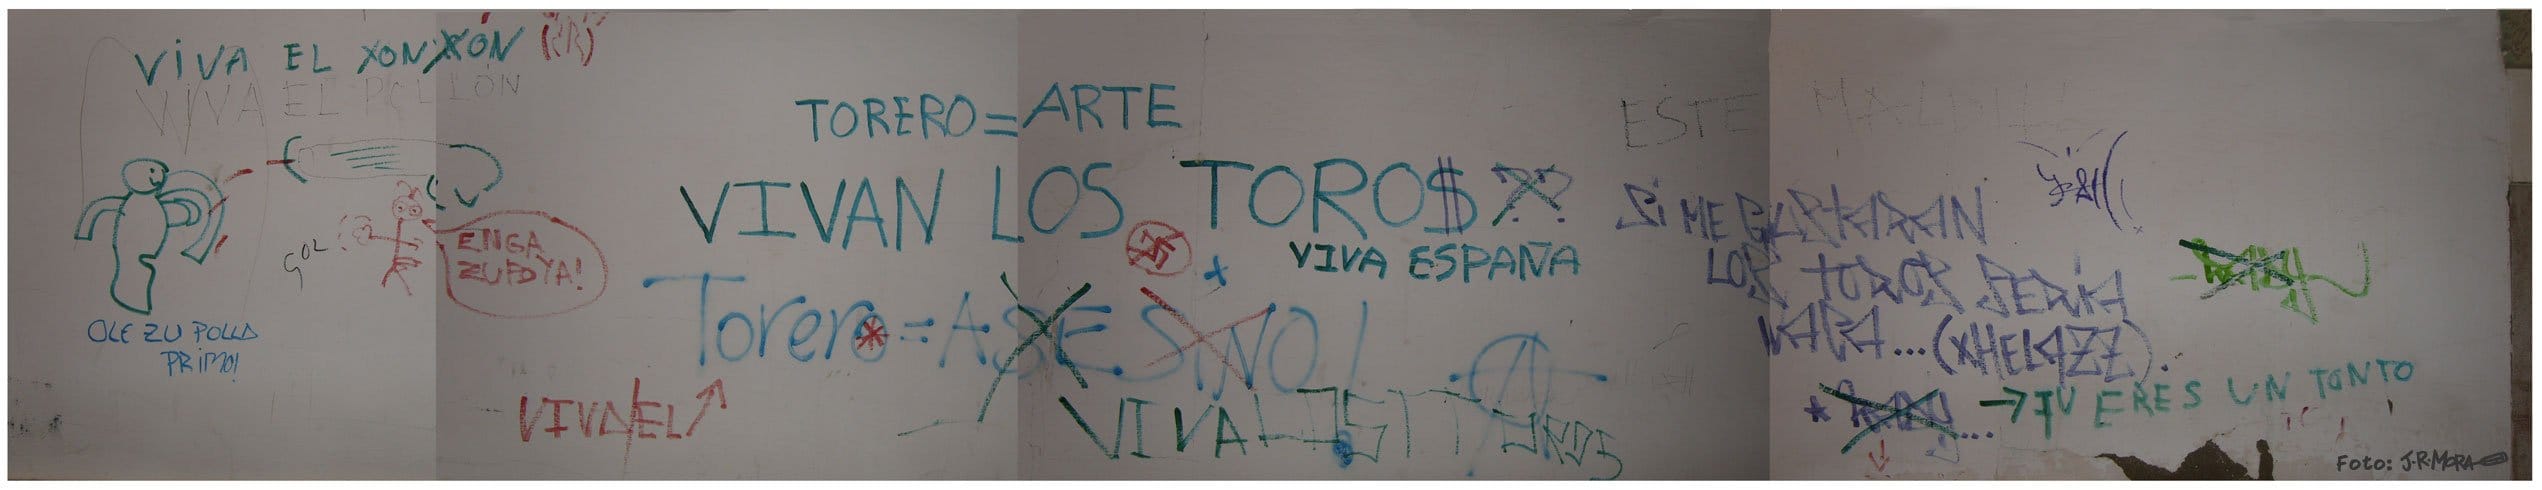 VIVA EL XON XÓN
VIVA EL POLLÓN
TORERO = ARTE
ESTE
VIVAN LOS TORO$ ??
VIVA ESPAÑA
SI ME GUSTARAN
LOS TOROS SERÍA
VACA... (XHELAZZ).
GOL
ENGA
ZUPOYA!
OLE ZU POLLA
PRIMO!
Torero = ASESINO!
VIVA EL
VIVA
TU ERES UN TONTO
Foto: J.R.MORA